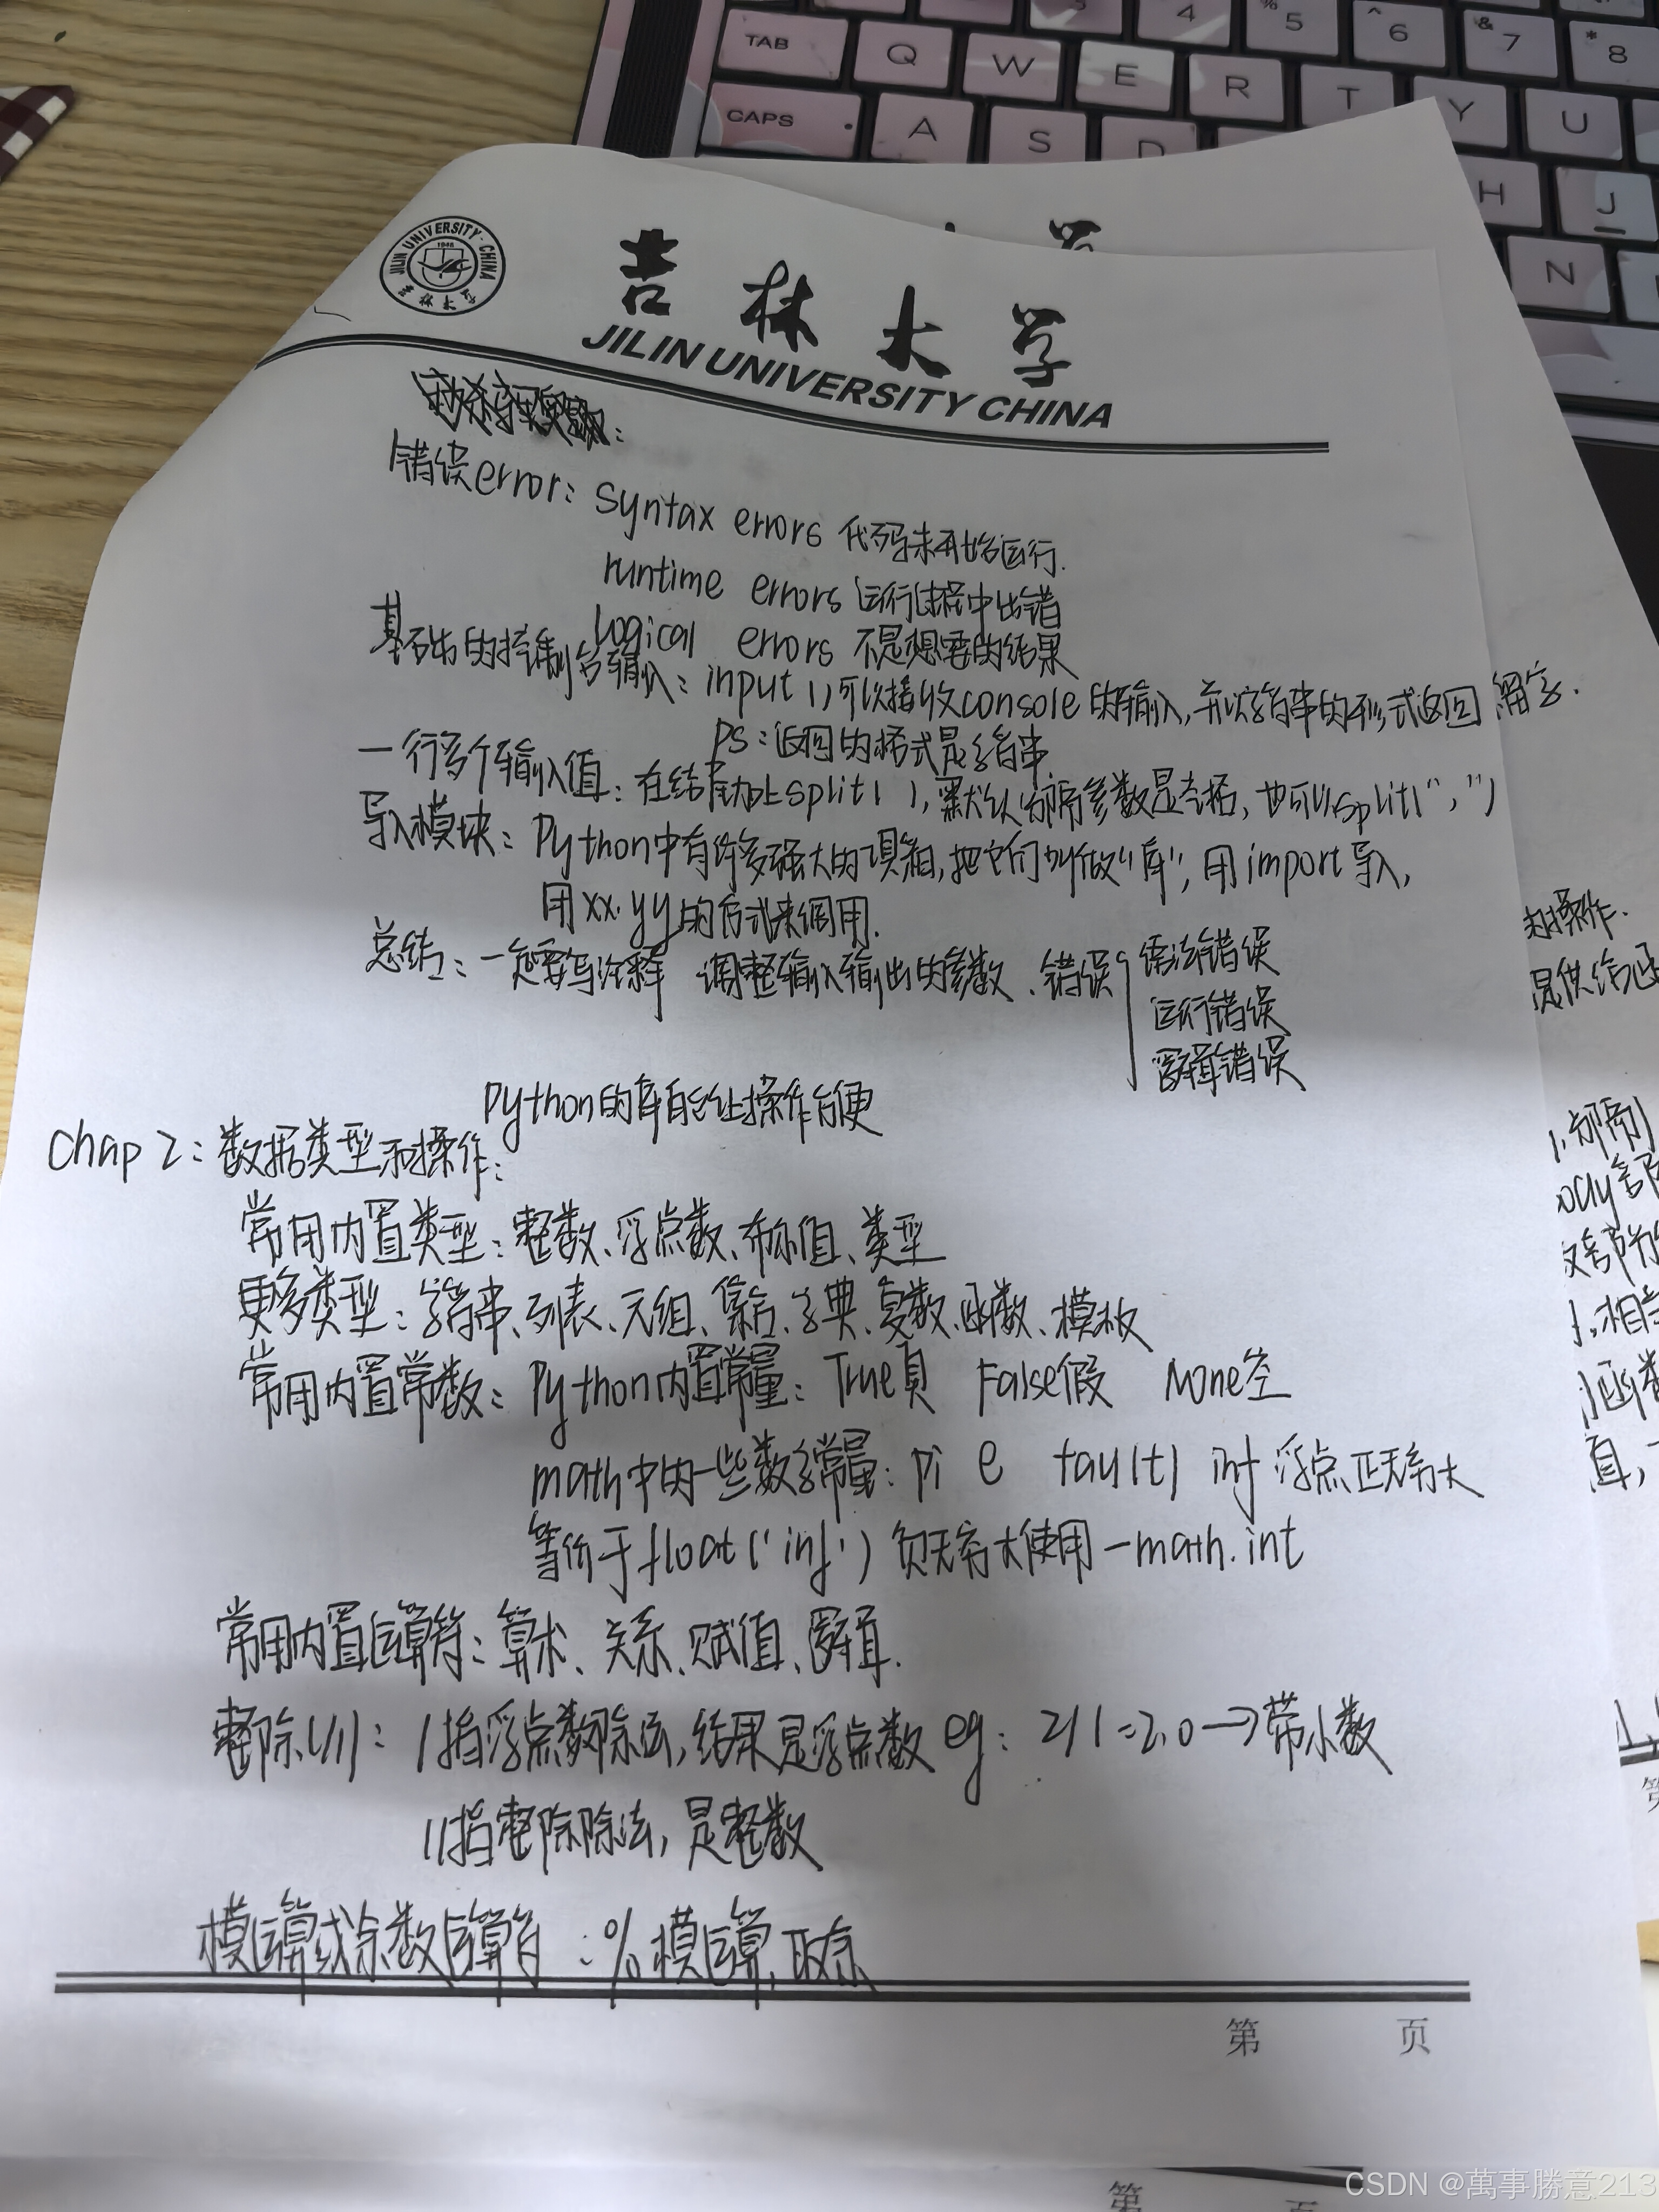 TAB Q W E R T Y U
4 5 6 7 8
CAPS A S D H J
N
JILIN UNIVERSITY·CHINA
1946
吉林大学
吉林大学
JILIN UNIVERSITY CHINA
错误error: syntax errors 代码未开始运行.
runtime errors 运行过程中出错
logical errors 不是想要的结果
基础的控制台输入: input()可以接收console的输入,并以字符串的形式返回
PS:返回的格式是字符串
一行多个输入值:在结尾加上split(),默认分隔参数是空格,也可以split(",")
导入模块:Python中有许多强大的工具箱,把它们叫做"库",用import导入,
用xx.yy的方式来调用.
总结:一定要写注释 调整输入输出的参数、错误 语法错误
运行错误
逻辑错误
Python的库能让操作方便
Chap 2:数据类型和操作:
常用内置类型:整数、浮点数、布尔值、类型
更多类型:字符串、列表、元组、集合、字典、复数、函数、模板
常用内置常数:Python内置常量:True真 False假 None空
math中的一些数学常量:pi e tau(t) inf 浮点正无穷大
等价于float('inf') 负无穷大使用-math.int
常用内置运算符:算术、关系、赋值、逻辑.
整除(//): /指浮点数除法,结果是浮点数 eg: 2/1=2.0→带小数
//指整除除法,是整数
模运算或余数运算符:%模运算,取余
第 页
第 页
CSDN @萬事勝意213